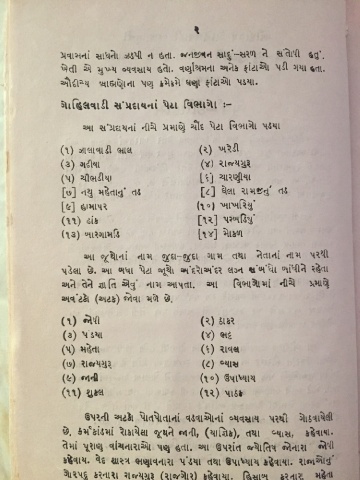 ૧
પ્રવામનાં સાધનો ઝડપી ન હતા. જનજીવન સાદું-સરળ ને સંતોષી હતું.
ખેતી એ મુખ્ય વ્યવસાય હતો. વર્ણાશ્રમના અનેક ફાંટાઓ પડી ગયા હતા.
ઔદીચ્ય બ્રાહ્મણોના પણ ક્રમેક્રમે ઘણા ફાંટાઓ પડયા.
ગોહિલવાડી સંપ્રદાયનાં પેટા વિભાગો :-
આ સંપ્રદાયનાં નીચે પ્રમાણે ચૌદ પેટા વિભાગો પડયા
(૧) ઝાલાવાડી ભાલ (૨) ખરેડી
(૩) ગઢીયા (૪) રાજ્યગુરૂ
(૫) ચીભડીયા (૬) ચારણીયા
[૭] નથુ મહેતાનું તડ [૮] ઘેલા રામજીનું તડ
[૯] હામાપર (૧૦) ખાખરિયું
(૧૧) ઢાંક [૧૨] પરખડિયું
(૧૩) ખારગામડિ [૧૪] મોકળ
આ જૂથોનાં નામ જુદા-જુદા ગામ તથા નેતાનાં નામ પરથી
પડેલા છે. આ બધા પેટા જૂથો અંદરોઅંદર લગ્ન સંબંધો બાંધીને રહેતા
અને તેને જ્ઞાતિ એવું નામ આપતા. આ વિભાગોમાં નીચે પ્રમાણે
અવટંકો (અટક) જોવા મળે છે.
(૧) જોષી (૨) ઠાકર
(૩) પંડયા (૪) ભટ્ટ
(૫) મહેતા (૬) રાવલ
(૭) રાજ્યગુરૂ (૮) વ્યાસ
(૯) જાની (૧૦) ઉપાધ્યાય
(૧૧) શુકલ (૧૨) પાઠક
ઉપરની અટકો પોતપોતાનાં વડવાઓનાં વ્યવસાય પરથી ગોઠવાયેલી
છે. કર્મકાંડમાં રોકાયેલા જૂથને જાની, (યાજ્ઞિક), તથા વ્યાસ, કહેવાય.
તેમાં પૂરાણુ વાંચનારાઓ પણ હતા. આ ઉપરાંત જ્યોતિષ જોનારા જોષી
કહેવાય. વેદ શાસ્ત્ર ભણાવનારા પંડયા તથા ઉપાધ્યાય કહેવાયા. રાજાઓનું
ગોરપદું કરનારા રાજ્યગુરૂ (રાજગોર) કહેવાયા. હિસાબ કરનારા મહેતા